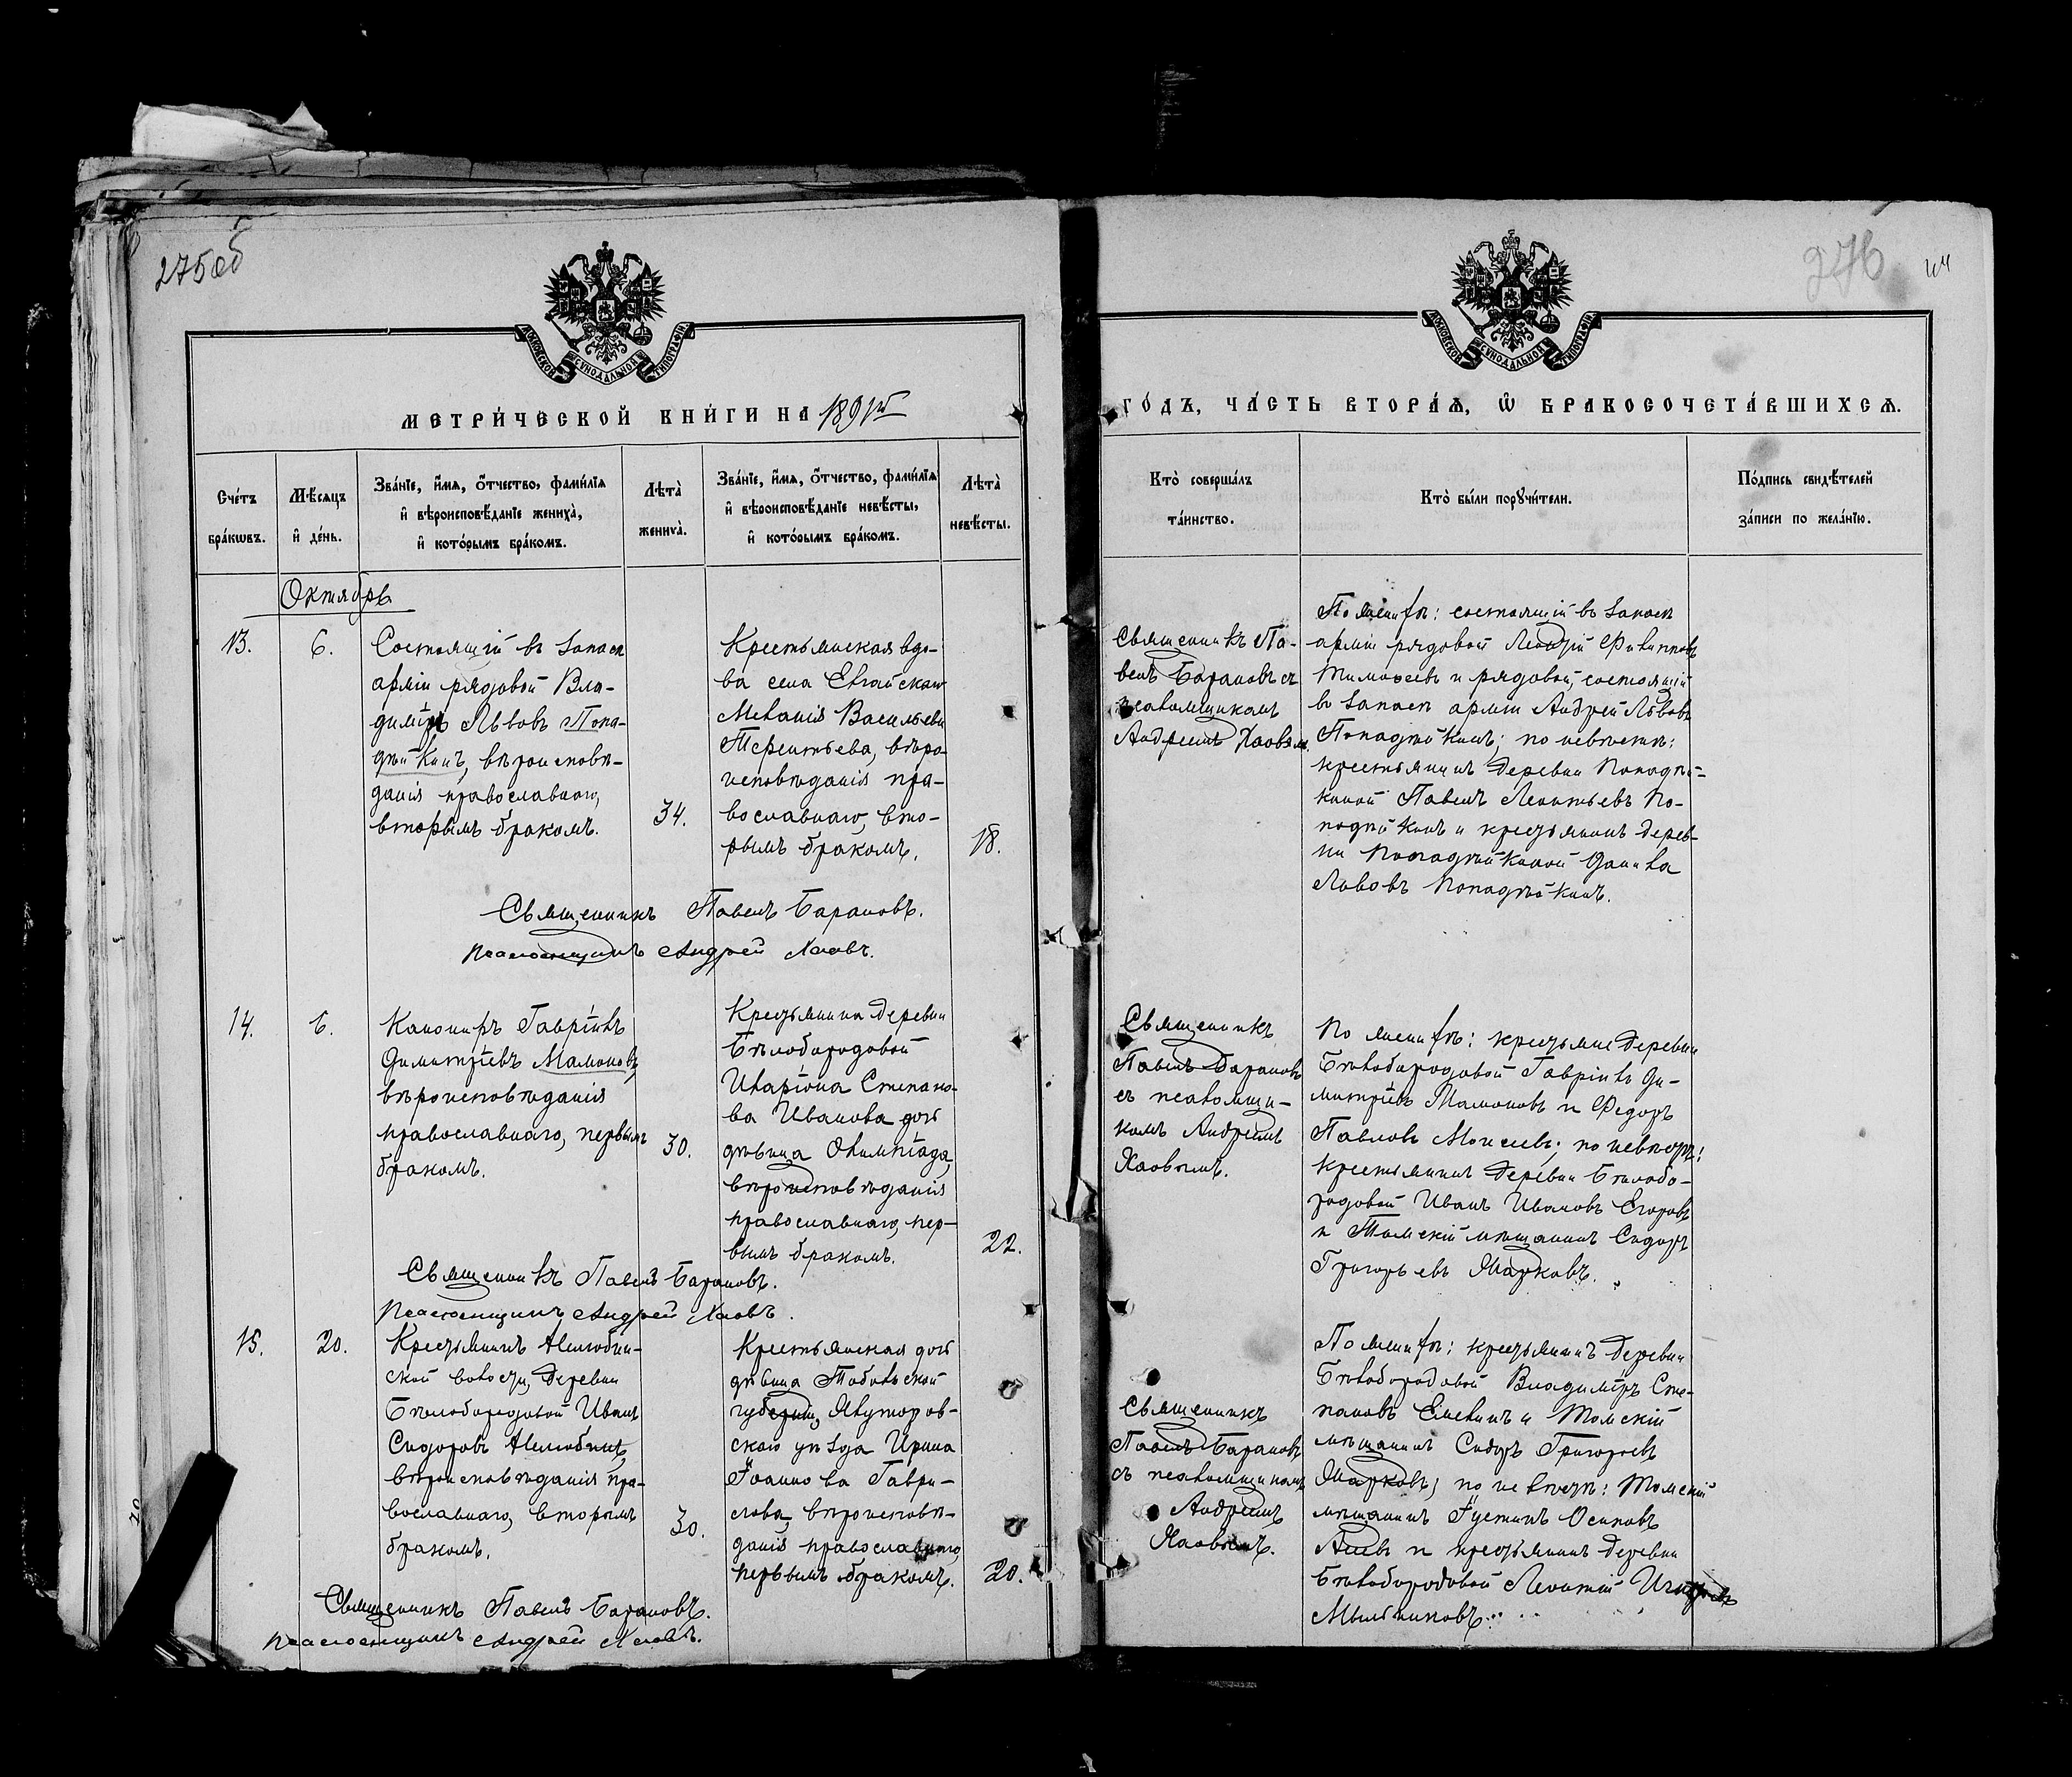 275об
МОСКОВСКОЙ СУНОДАЛЬНОЙ ТИПОГРАФІИ
МЕТРИ́ЧЕСКОЙ КНИ́ГИ НА 1891й
Сче́тъ бра́кѡвъ.
Мѣ́сяцъ и҆ де́нь.
Зва́нїе, и҆́мѧ, ѻ҆́тчество, фами́лїѧ
и҆ вѣроисповѣ́данїе жениха̀,
и҆ кото́рымъ бра́комъ.
Лѣта̀ жениха̀.
Зва́нїе, и҆́мѧ, ѻ҆́тчество, фами́лїѧ
и҆ вѣроисповѣ́данїе невѣ́сты,
и҆ кото́рымъ бра́комъ.
Лѣта̀ невѣ́сты.
Октябрь
13.
6.
Состоящій въ запасѣ
арміи рядовой Вла-
диміръ Львовъ Попа-
дѣйкинъ, вѣроисповѣ-
данія православнаго,
вторымъ бракомъ.
34.
Крестьянская вдо-
ва села
Меланія Васильева
Терентьева, вѣро-
исповѣданія пра-
вославнаго, вто-
рымъ бракомъ.
18.
Священникъ Павелъ Барановъ.
Псаломщикъ Андрей Хаовъ.
14.
6.
Канониръ Гавріилъ
Димитріевъ Мамоновъ,
вѣроисповѣданія
православнаго, первымъ
бракомъ.
30.
Крестьянина деревни
Бѣлобородовой
Иларіона Степано-
ва Иванова дочь
дѣвица Олимпіада,
вѣроисповѣданія
православнаго, пер-
вымъ бракомъ.
22.
Священникъ Павелъ Барановъ.
Псаломщикъ Андрей Хаовъ.
15.
20.
Крестьянинъ Нелюбин-
ской волости, деревни
Бѣлобородовой Иванъ
Сидоровъ Нелюбинъ,
вѣроисповѣданія пра-
вославнаго, вторымъ
бракомъ.
30.
Крестьянская дочь
дѣвица Тобольской
губерніи, Ялуторов-
скаго уѣзда Ирина
Іоаннова Гаври-
лова, вѣроисповѣ-
данія православнаго,
первымъ бракомъ.
20.
Священникъ Павелъ Барановъ.
Псаломщикъ Андрей Хаовъ.
276
МОСКОВСКОЙ СУНОДАЛЬНОЙ ТИПОГРАФІИ
ГО́ДЪ, ЧА́СТЬ ВТОРА́Ѧ, Ѡ҆ БРАКОСОЧЕТА́ВШИХСѦ.
Кто̀ соверша́лъ
та́инство.
Кто̀ бы́ли порꙋчи́тели.
По́дпись свидѣ́телей
за́писи по жела́нїю.
Священникъ Па-
велъ Барановъ съ
псаломщикомъ
Андреемъ Хаовымъ.
По женихѣ: состоящій въ запасѣ
арміи рядовой Леонтій Филипповъ
Тимофеевъ и рядовой, состоящій
въ запасѣ арміи Андрей Львовъ
Попадѣйкинъ; по невѣстѣ:
крестьянинъ деревни Попадѣй-
киной Павелъ Леонтьевъ По-
подѣйкинъ и крестьянинъ дерев-
ни Попадѣйкиной Данила
Львовъ Попадѣйкинъ.
Священникъ
Павелъ Барановъ
съ псаломщи-
комъ Андреемъ
Хаовымъ.
По женихѣ: крестьяне деревни
Бѣлобородовой Гавріилъ Ди-
митріевъ Мамоновъ и Федоръ
Павловъ Моисеевъ; по невѣстѣ:
крестьянинъ деревни Бѣлобо-
родовой Иванъ Ивановъ Егоровъ
и Томскій мѣщанинъ Сидоръ
Григорьевъ Марковъ.
Священникъ
Павелъ Барановъ
съ псаломщикомъ
Андреемъ
Хаовымъ.
По женихѣ: крестьянинъ деревни
Бѣлобородовой Владиміръ Сте-
пановъ Емелинъ и Томскій
мѣщанинъ Сидоръ Григорьевъ
Марковъ; по невѣстѣ: Томскій
мѣщанинъ Іустинъ Осиповъ
и крестьянинъ деревни
Бѣлобородовой Леонтій
Мыльниковъ.